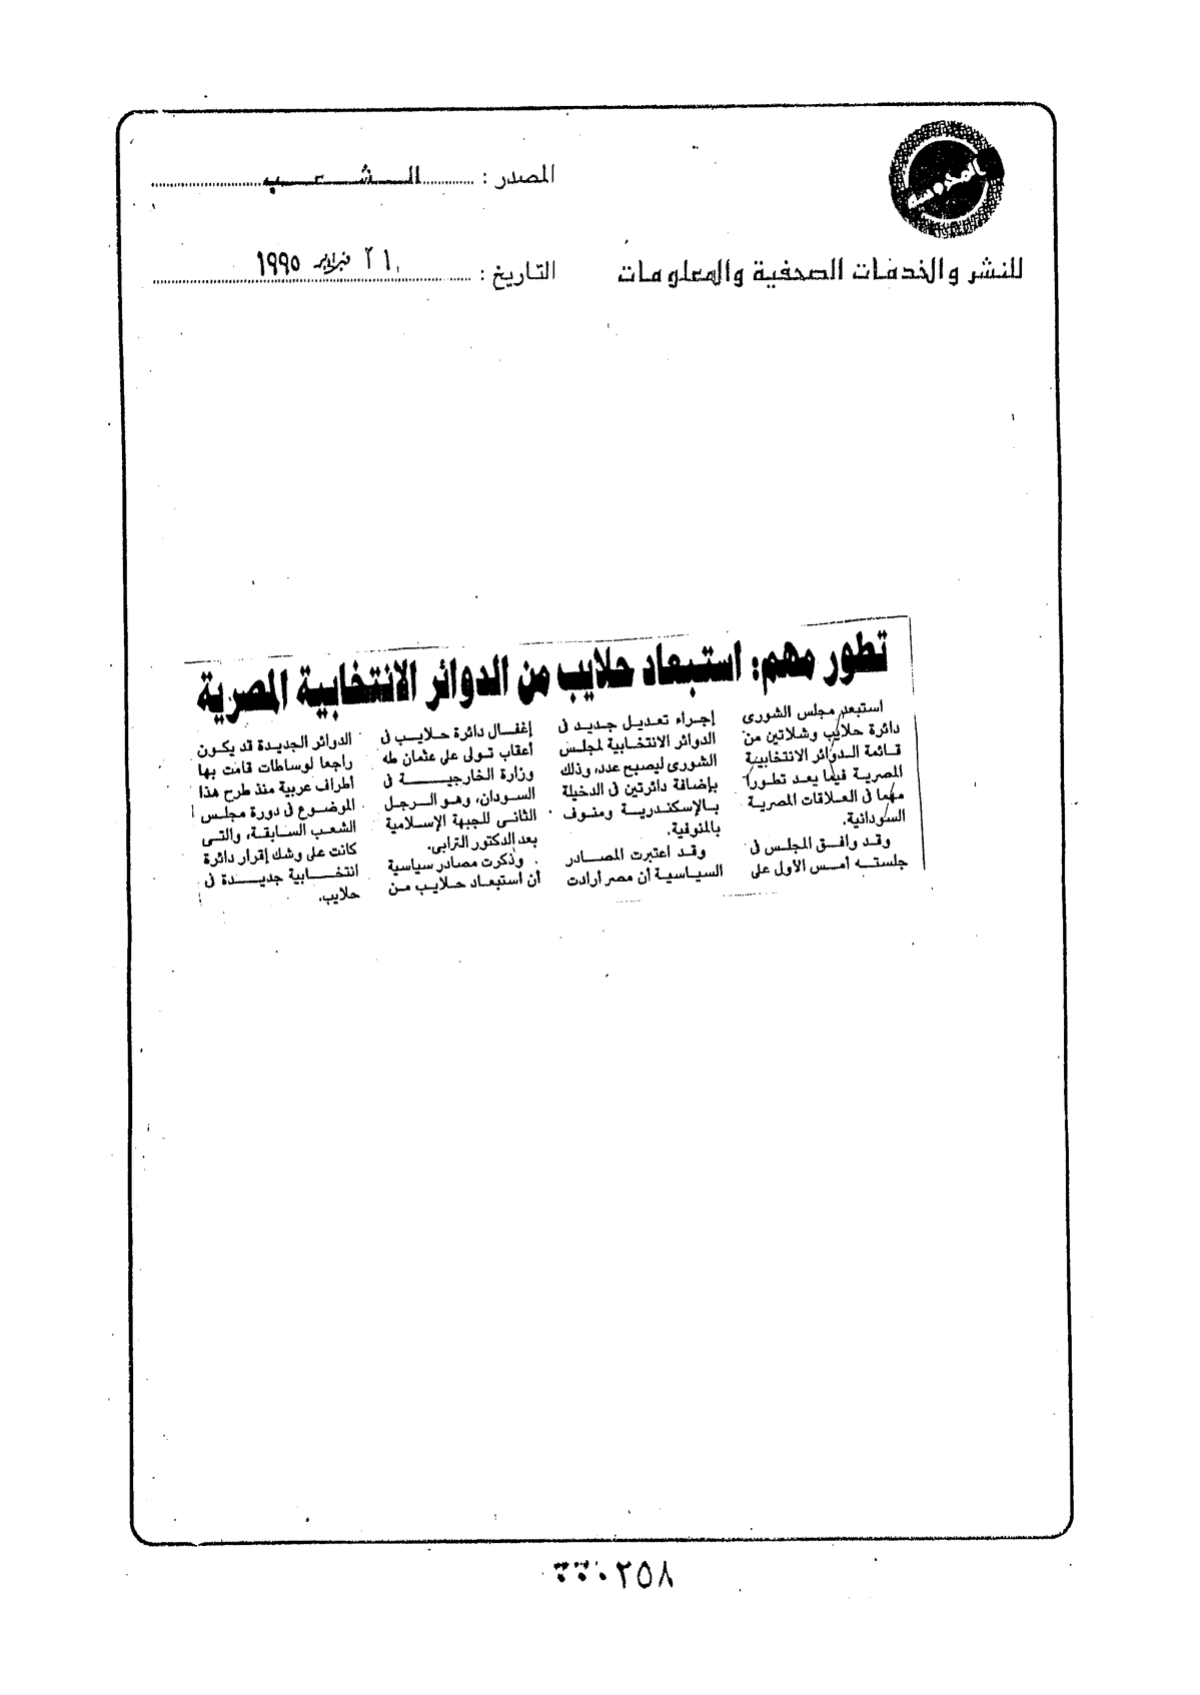 المحروسة
للنشر والخدمات الصحفية والمعلومات
المصدر : الشعب
التاريخ : ٢١ فبراير ١٩٩٥
تطور مهم: استبعاد حلايب من الدوائر الانتخابية المصرية
استبعد مجلس الشورى
دائرة حلايب وشلاتين من
قائمة الدوائر الانتخابية
المصرية فيما يعد تطورا
مهما فى العلاقات المصرية
السودانية.
وقد وافق المجلس فى
جلسته أمس الأول على
إجراء تعديل جديد فى
الدوائر الانتخابية لمجلس
الشورى ليصبح عدد، وذلك
بإضافة دائرتين فى الدخيلة
بالإسكندرية ومنوف
بالمنوفية.
وقد اعتبرت المصادر
السياسية أن مصر أرادت
إغفال دائرة حلايب فى
أعقاب تولى على عثمان طه
وزارة الخارجية فى
السودان، وهو الرجل
الثانى للجبهة الإسلامية
بعد الدكتور الترابى.
وذكرت مصادر سياسية
أن استبعاد حلايب من
الدوائر الجديدة قد يكون
راجعا لوساطات قامت بها
أطراف عربية منذ طرح هذا
الموضوع فى دورة مجلس
الشعب السابقة، والتى
كانت على وشك إقرار دائرة
انتخابية جديدة فى
حلايب.